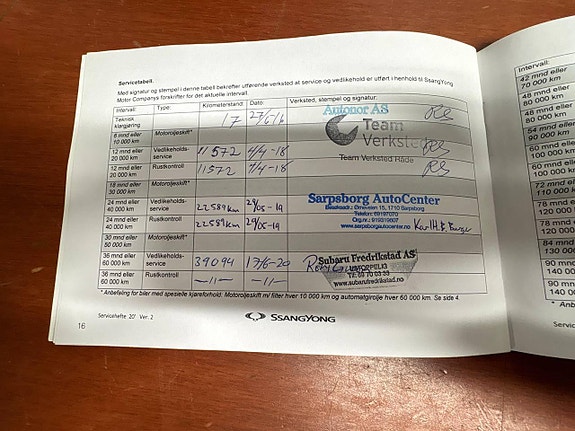 Servicetabell.
Med signatur og stempel i denne tabell bekrefter utførende verksted at service og vedlikehold er utført i henhold til SsangYong
Motor Companys forskrifter for det aktuelle intervall.
Intervall: Type: Kilometerstand: Dato: Verksted, stempel og signatur:
Teknisk klargjøring 17 27/6-16 Autonor AS
6 mnd eller 10 000 km Motoroljeskift*
Team Verksted
12 mnd eller 20 000 km Vedlikeholds-service 11572 4/4-18
12 mnd eller 20 000 km Rustkontroll 11572 4/4-18 Team Verksted Råde
18 mnd eller 30 000 km Motoroljeskift*
24 mnd eller 40 000 km Vedlikeholds-service 22589km 29/05-19 Sarpsborg AutoCenter
1710 Sarpsborg
Telefon: 69197070
24 mnd eller 40 000 km Rustkontroll 22589km 29/05-19 www.sarpsborgautocenter.no
30 mnd eller 50 000 km Motoroljeskift*
36 mnd eller 60 000 km Vedlikeholds-service 39094 17/6-20 Subaru Fredrikstad AS
Tlf. 69 70 03 33
36 mnd eller 60 000 km Rustkontroll -11- -11- www.subarufredrikstad.no
* Anbefaling for biler med spesielle kjøreforhold: Motoroljeskift m/ filter hver 10 000 km og automatgirolje hver 60 000 km. Se side 4.
Servicehefte 20' Ver. 2
16
SSANGYONG
Intervall:
42 mnd eller
70 000 km
48 mnd eller
80 000 km
48 mnd
80 000 km
54 mnd eller
90 000 km
60 mnd
100 000
60 mnd
100 000
72 mnd
110 000
78 mnd
120 000
78 mnd
120 000
84 mnd
130 000
90 mnd
140 00
90 mnd
140 00
* Anb
Servi